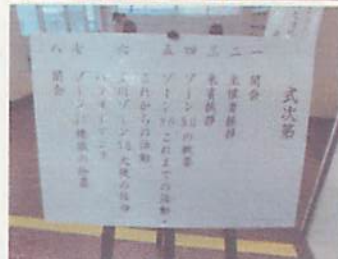 式次第
一 開会
二 主催者挨拶
三 来賓挨拶
四 ゾーン30の概要
五 ゾーン30これまでの活動・
これからの活動
六 ゾーン30大使の任命
パフォーマンス
七 ゾーン30標識の除幕
八 閉会